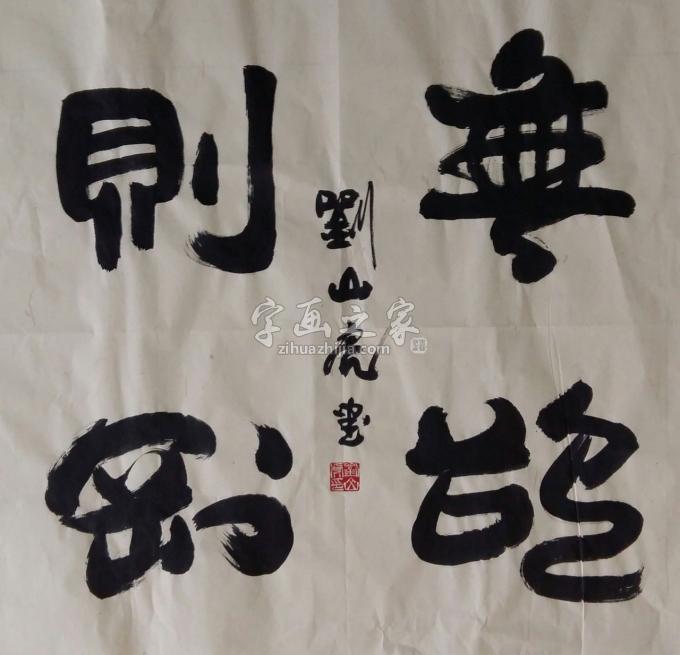 無欲
則剛
劉山虎書
字画之家
zihuazhijia.com